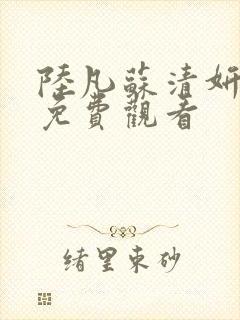 陸凡蘇清妍
免費觀看
緒里束砂